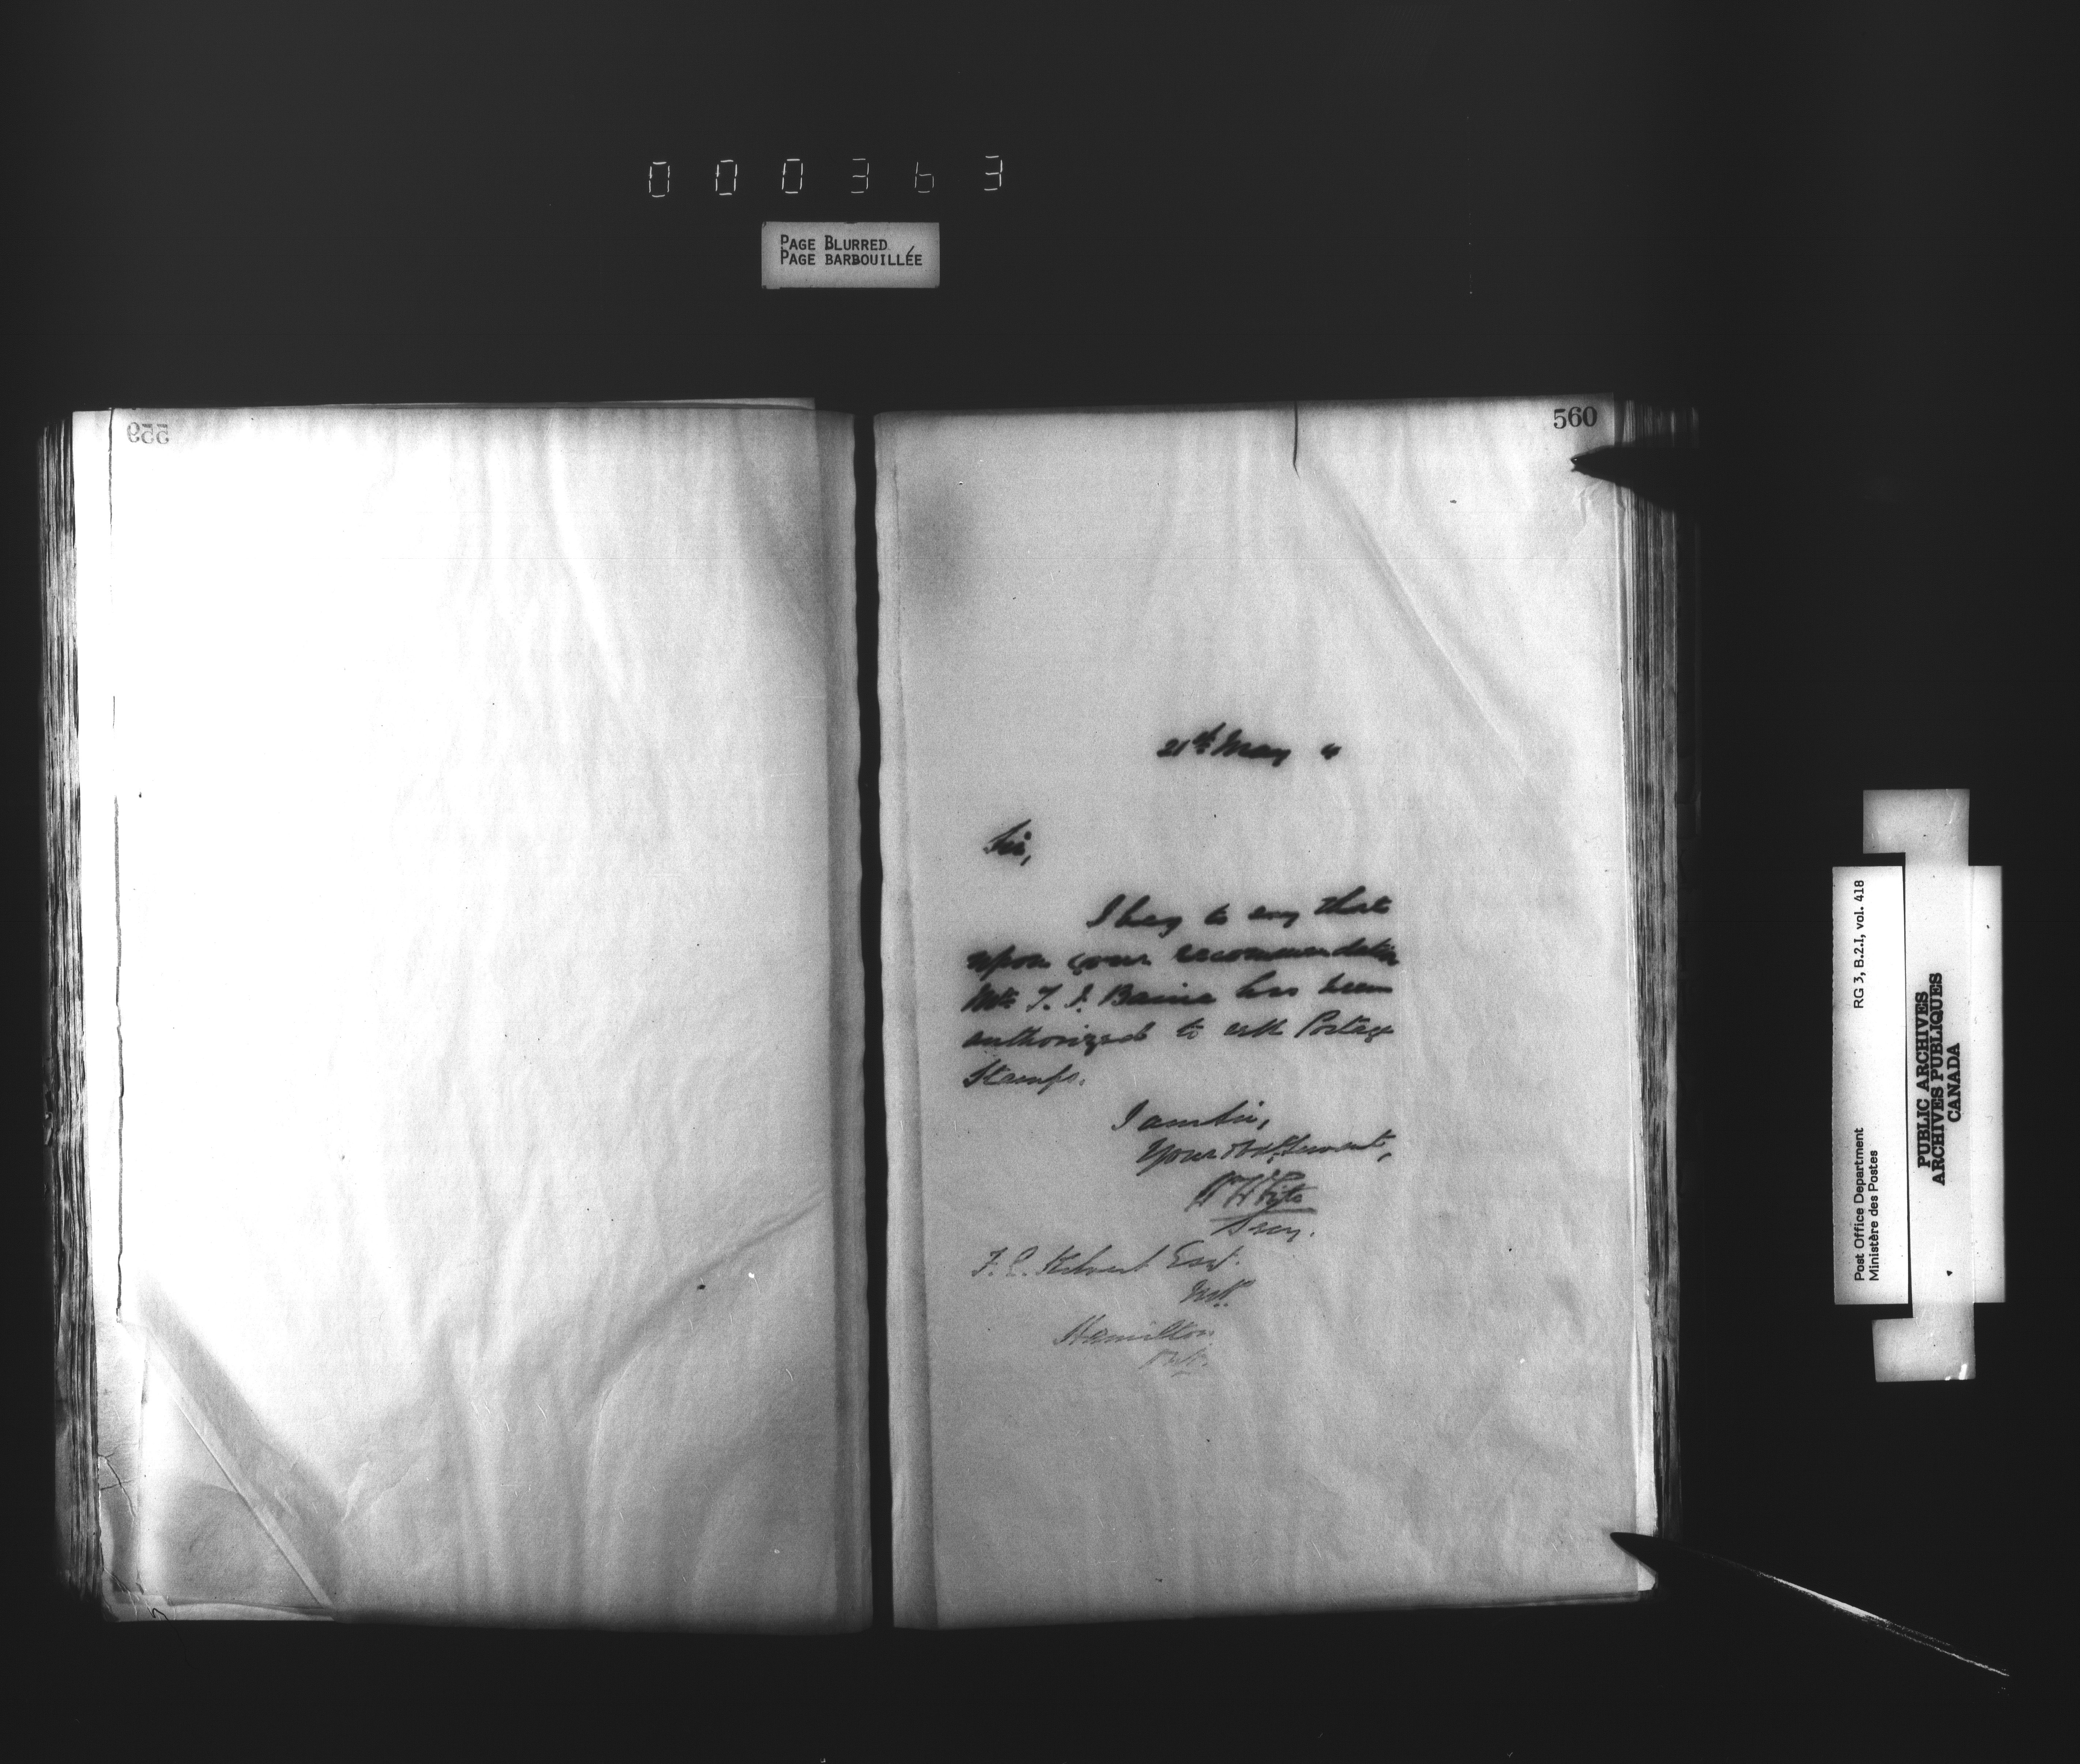 000363
PAGE BLURRED
PAGE BARBOUILLÉE
559
560
21st May "
Sir,
I beg to say that
upon your recommendation
Mr. T. J. Baine has been
authorized to sell Postage
Stamps.
I am Sir,
Your Obt. Servant,
Secy.
F. E. Kilvert Esq.
Hamilton
Ont.
RG 3, B.2.I, vol. 418
Post Office Department
Ministère des Postes
PUBLIC ARCHIVES
ARCHIVES PUBLIQUES
CANADA